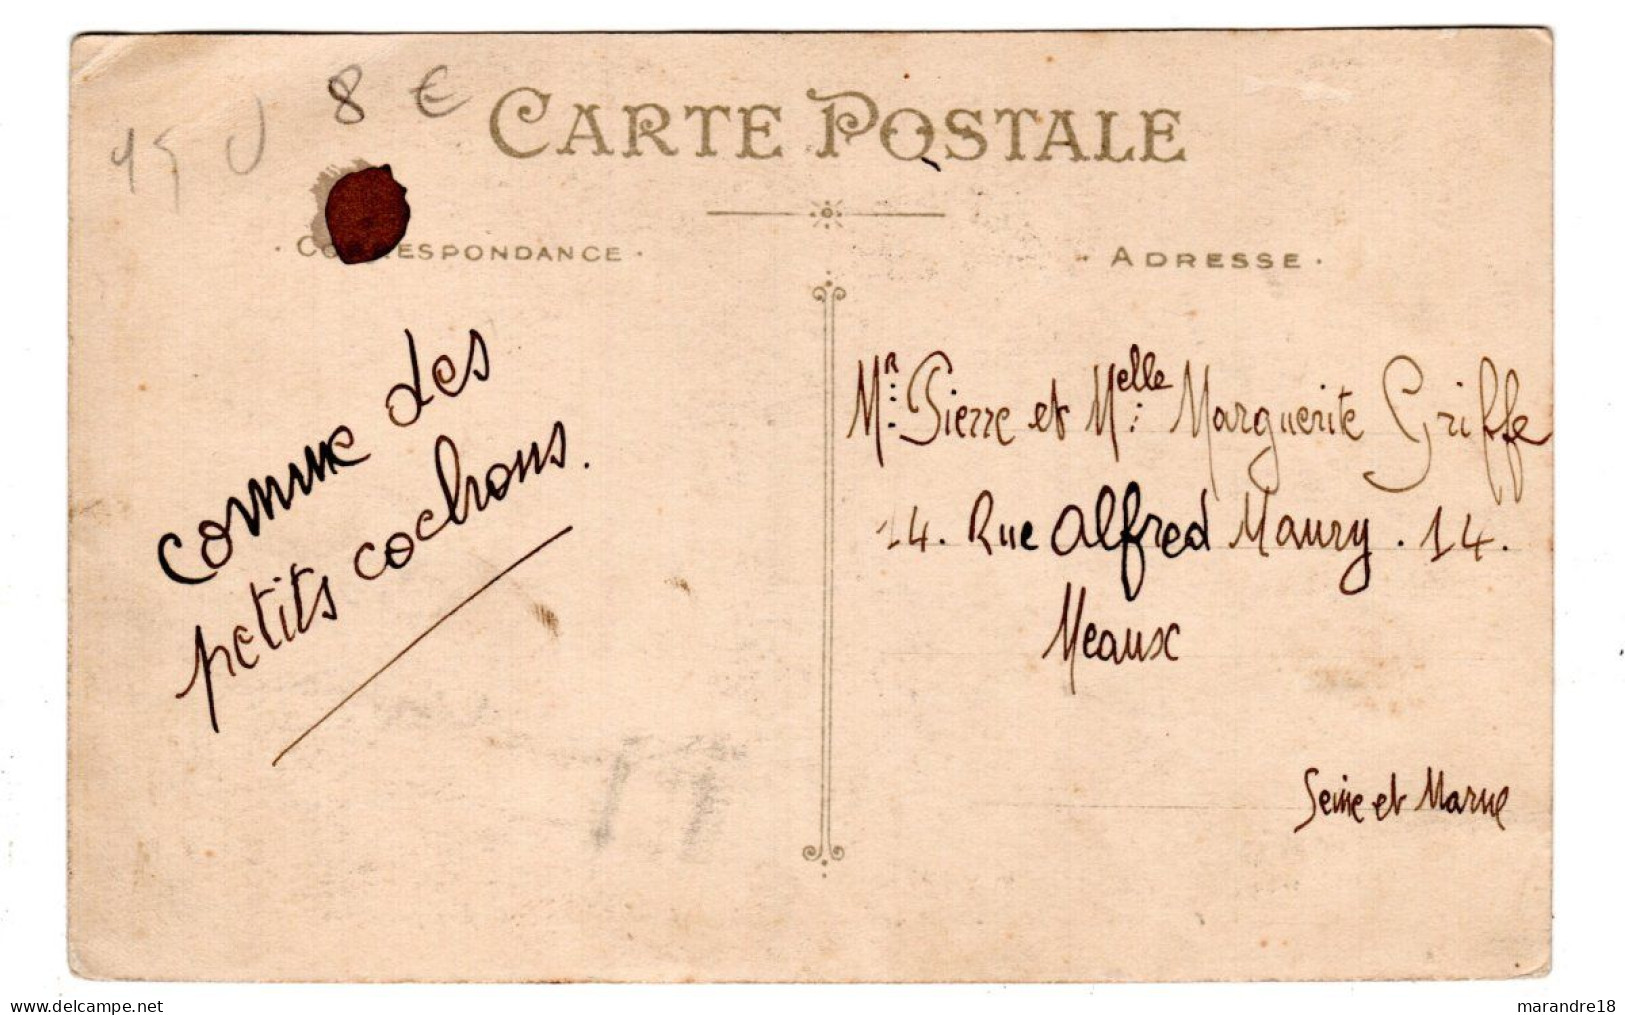 8 €
CARTE POSTALE
· CORRESPONDANCE ·
· ADRESSE ·
comme des
petits cochons.
Mr. Pierre et Melle Marguerite Griffe
14. Rue Alfred Maury. 14.
Meaux
Seine et Marne
www.delcampe.net
marandre18